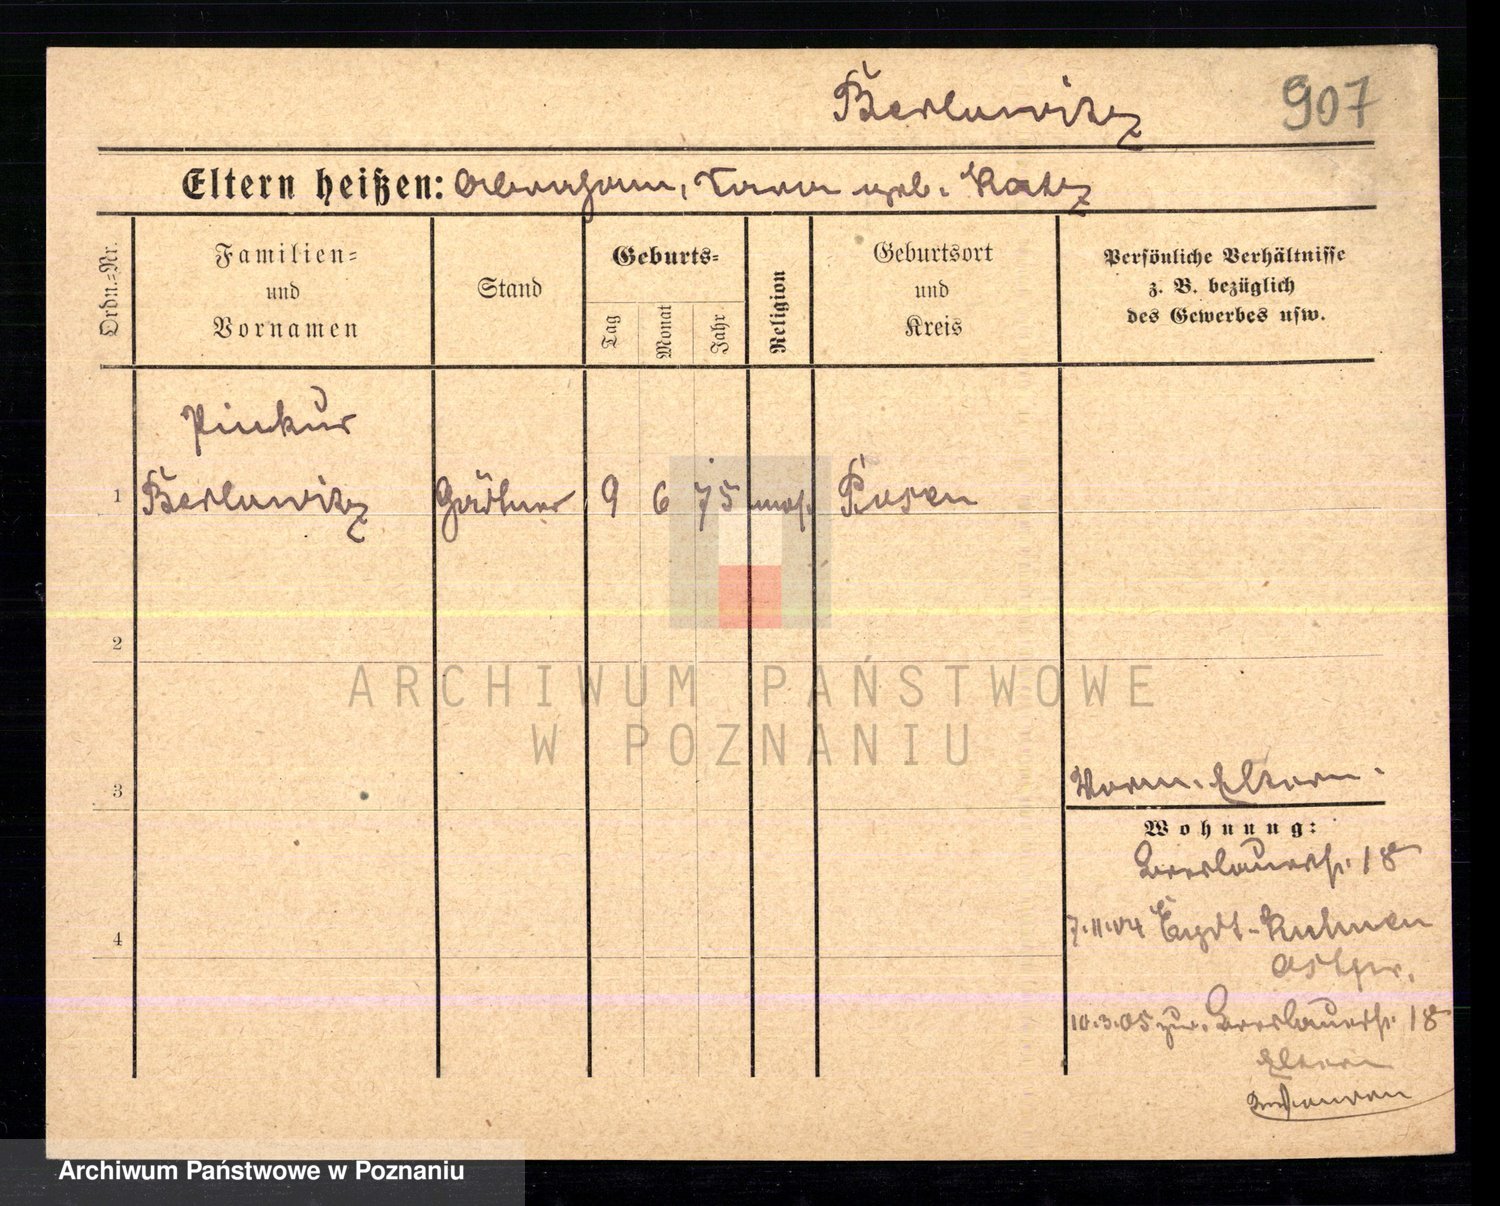 Berlowitz 907
Eltern heißen: Abraham, Sara geb. Katz
Ordn.=Nr.
Familien=
und
Vornamen
Stand
Geburts=
Tag
Monat
Jahr
Religion
Geburtsort
und
Kreis
Persönliche Verhältnisse
z. B. bezüglich
des Gewerbes usw.
Pinkus
1 Berlowitz Gärtner 9 6 75 mos. Posen
2
ARCHIWUM PAŃSTWOWE
W POZNANIU
3
Eltern.
Wohnung:
Breslauerstr. 18
4
7.11.04
10.3.05 zur. Breslauerstr. 18
Eltern
Archiwum Państwowe w Poznaniu